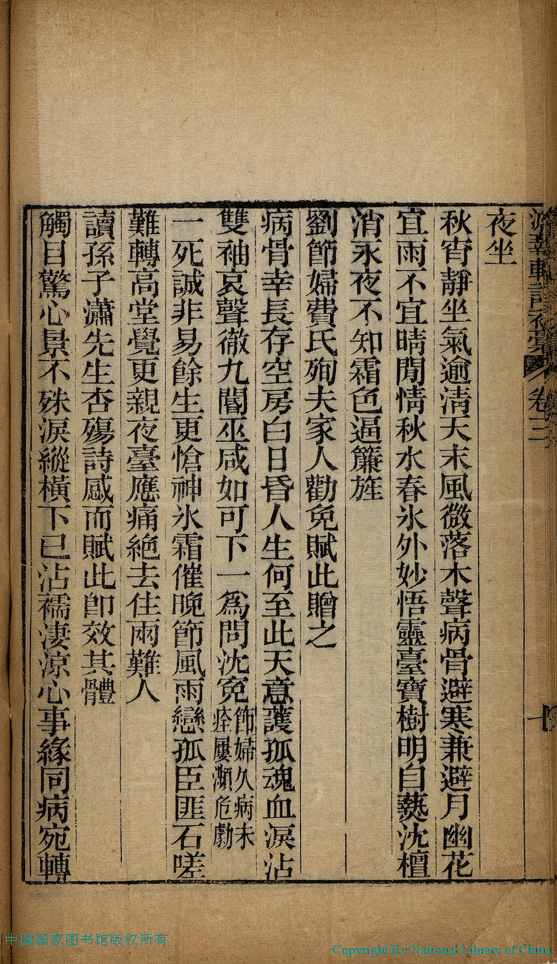 夜坐
秋宵靜坐氣逾淸天末風微落木聲病骨避寒兼避月幽花
宜雨不宜晴閒情秋水春氷外妙悟靈臺寶樹明自爇沈檀
消永夜不知霜色逼簾旌
劉節婦費氏殉夫家人勸免賦此贈之
病骨幸長存空房白日昏人生何至此天意護孤魂血淚沾
雙袖哀聲徹九閽巫咸如可下一爲問沈寃
節婦久病未
瘁屢瀕危劇
一死誠非易餘生更愴神氷霜催晚節風雨戀孤臣匪石嗟
難轉高堂覺更親夜臺應痛絕去住兩難人
讀孫子瀟先生杏殤詩感而賦此卽效其體
觸目驚心景不殊淚縱橫下已沾襦淒涼心事緣同病宛轉
卷三
十
中國國家图书馆版权所有
Copyright By National Library of China